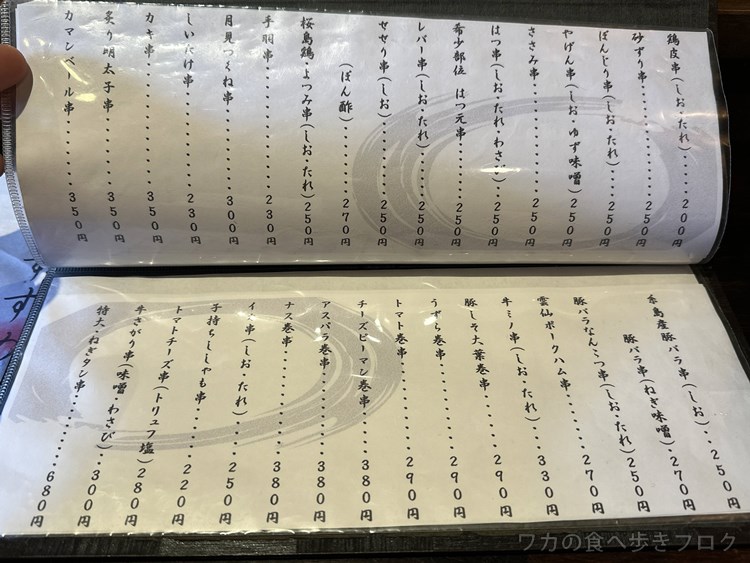 鶏皮串(しお・たれ)・・・・・・200円
砂ずり串・・・・・・・・・・250円
ぼんじり串(しお・たれ)・・・・250円
やげん串(しお ゆず味噌)250円
ささみ串・・・・・・・・・・250円
はつ串(しお・たれ・わさび)250円
希少部位 はつ元串・・・・・250円
レバー串(しお・たれ)・・・・・250円
せせり串(しお)・・・・・・・250円
(ぽん酢)・・・・・・270円
桜島鶏・よつみ串(しお・たれ)250円
手羽串・・・・・・・・・・230円
月見つくね串・・・・・・・・300円
しいたけ串・・・・・・・・・230円
カキ串・・・・・・・・・・・350円
炙り明太子串・・・・・・・・350円
カマンベール串・・・・・・・350円
糸島産豚バラ串(しお)・・・・250円
豚バラ串(ねぎ味噌)・270円
豚バラなんこつ串(しお・たれ)250円
雲仙ポークハム串・・・・・・270円
牛ミノ串(しお・たれ)・・・・330円
豚しそ大葉巻串・・・・・・・290円
うずら巻串・・・・・・・・・290円
トマト巻串・・・・・・・・・290円
チーズピーマン巻串・・・・・380円
アスパラ巻串・・・・・・・・380円
ナス巻串・・・・・・・・・・380円
イカ串(しお・たれ)・・・・・250円
子持ちししゃも串・・・・・・220円
トマトチーズ串(トリュフ塩)280円
牛さがり串(味噌・わさび)300円
特大・ねぎタン串・・・・・・680円
ワカの食べ歩きブログ